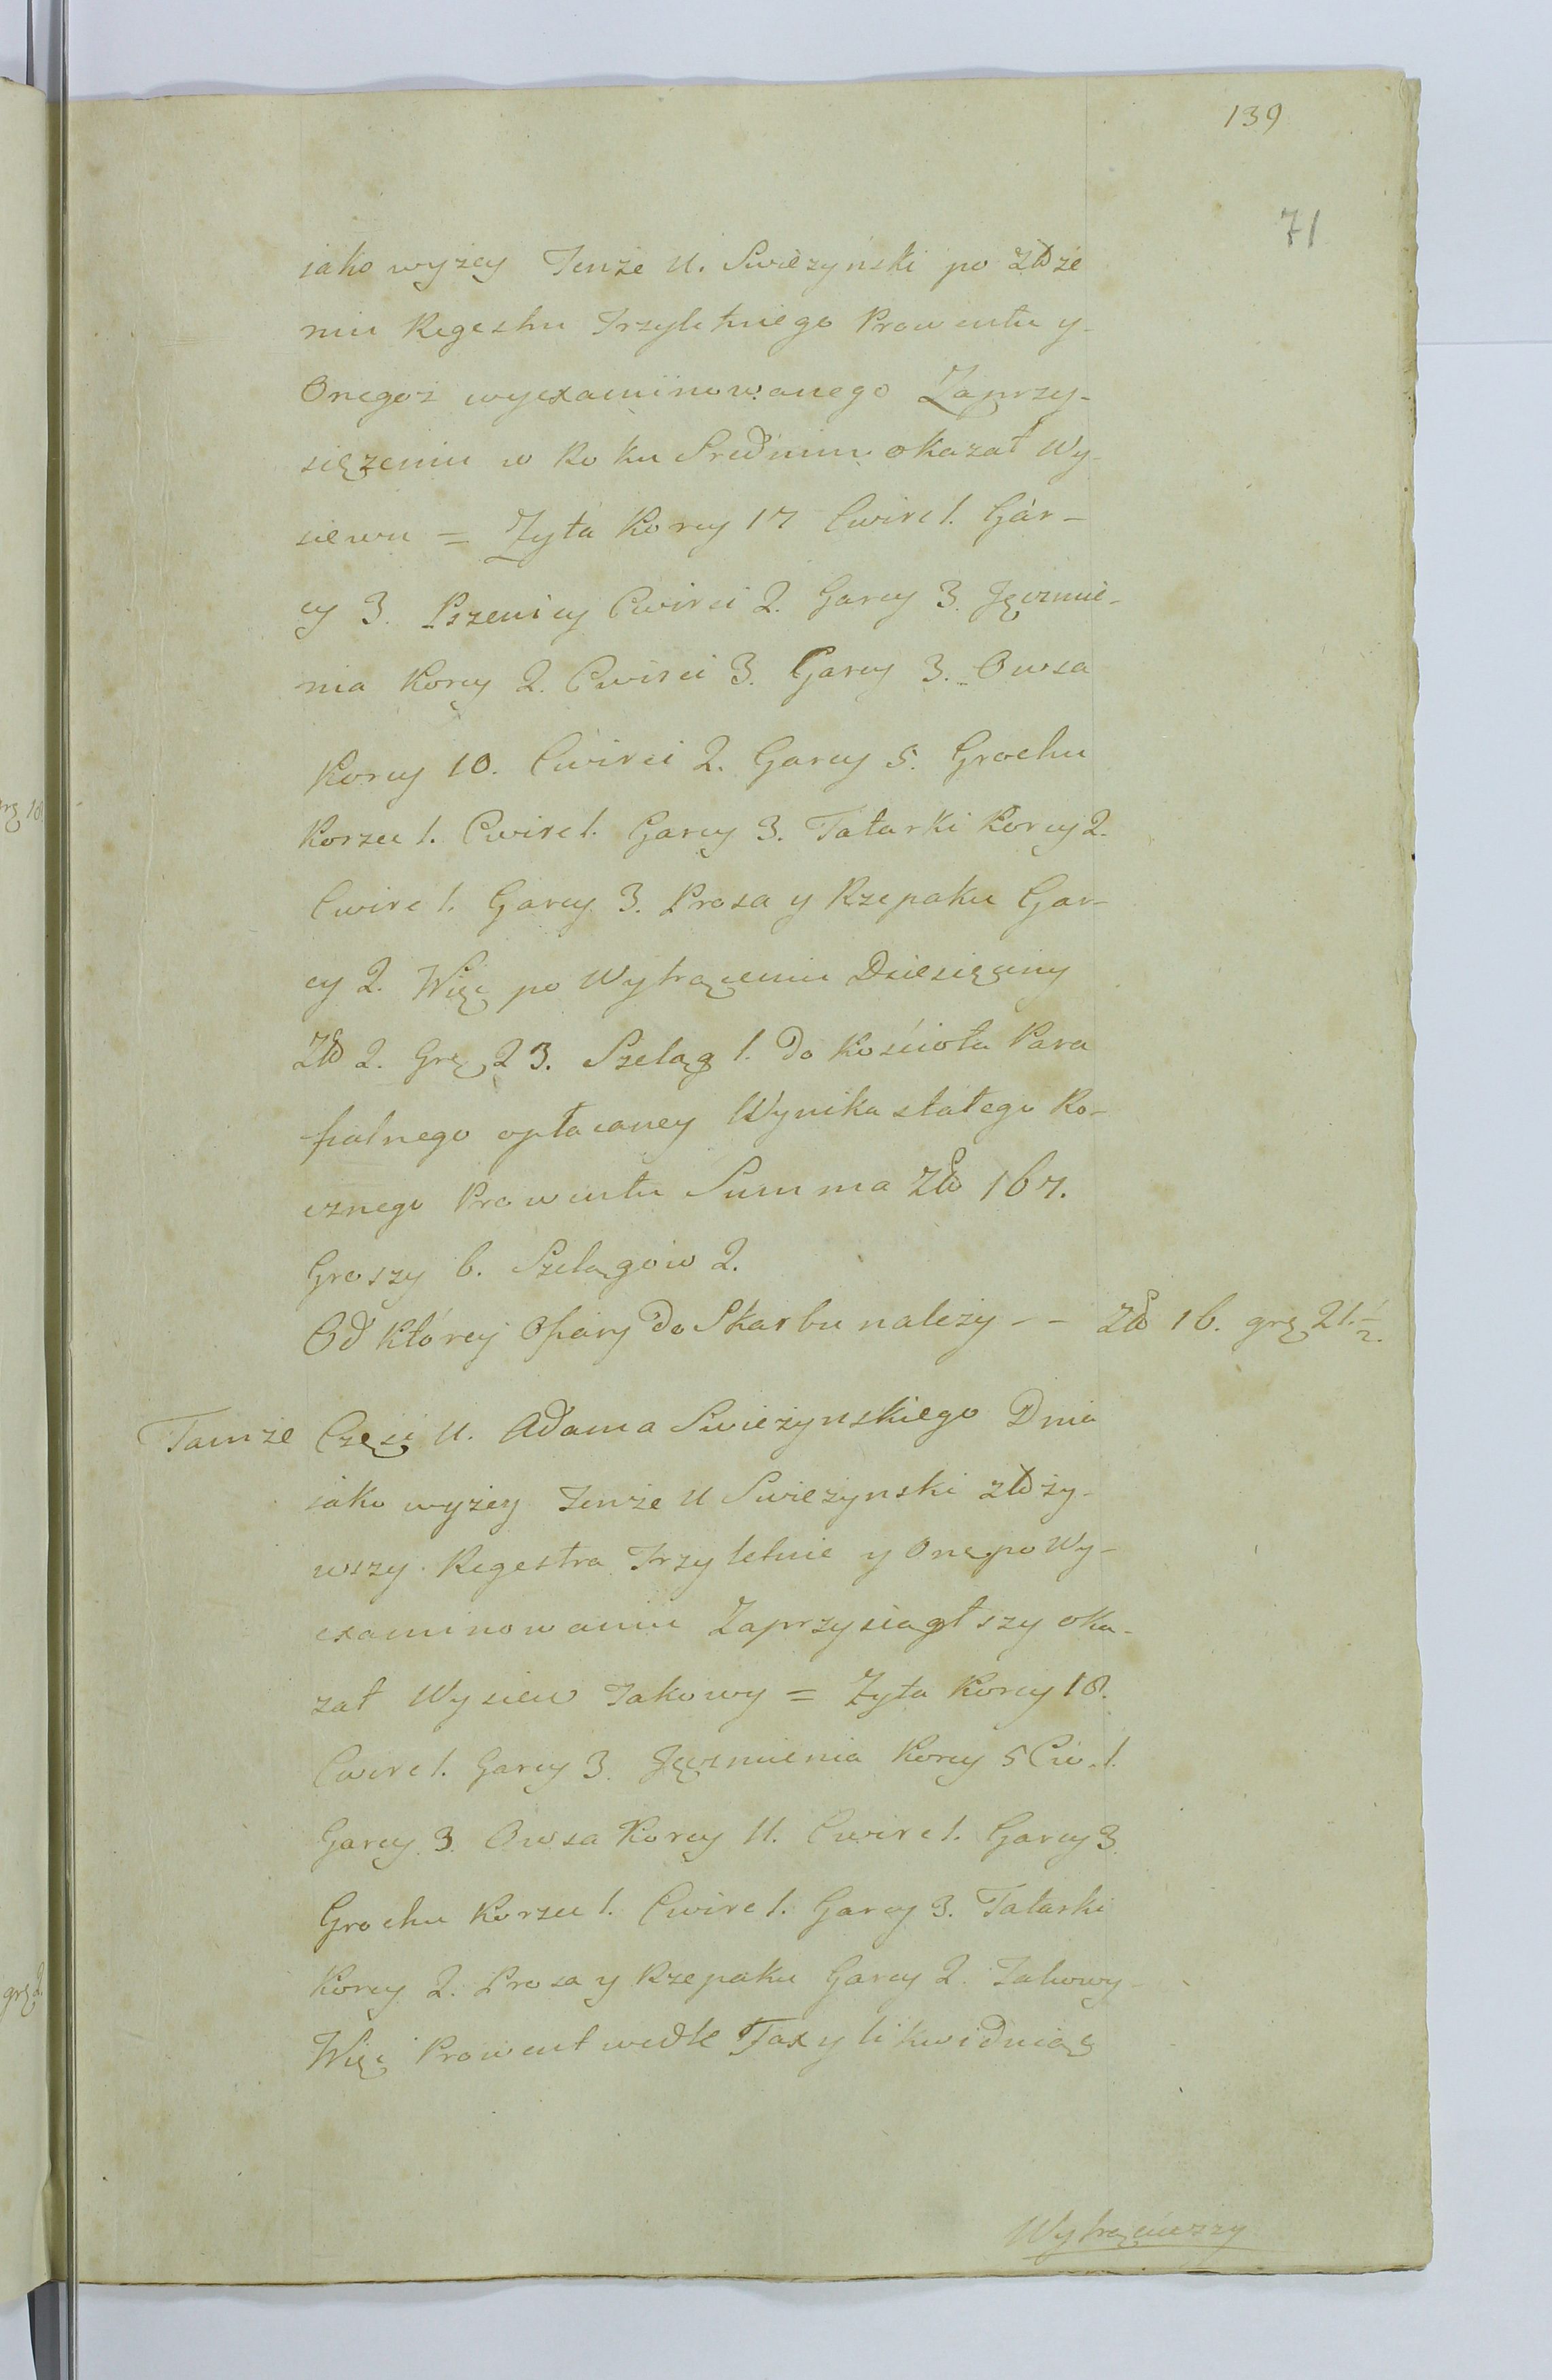 139
71
iako wyżey Tenże U. Swieżynski po złoże
niu Regestru Trzyletniego Prowentu y
Onegoż wyexaminowanego Zaprzy-
siężeniu w Roku Srednim okazał Wy-
siewu = Zyta Korcy 17 Cwierc 1. Gar-
cy 3. Pszenicy Cwierci 2. Garcy 3. Jęczmie-
nia Korcy 2. Cwierci 3. Garcy 3. Owsa
Korcy 10. Cwierci 2. Garcy 5. Grochu
Korzec 1. Cwierc 1. Garcy 3. Tatarki Korcy 2.
Cwierc 1. Garcy 3. Prosa y Rzepaku Gar-
cy 2. Więc po Wytrąceniu Dziesięciny
Złb 2. Grę 23. Szeląg 1. do Kościoła Para
fialnego opłacaney Wynika stałego Ro-
cznego Prowentu Summa Złb 167.
Groszy 6. Szelągow 2.
Od którey Ofiary do Skarbu należy - - Złb 16. grę 21. 1/2.
Tamże Częsć U. Adama Swieżynskiego Dnia
iako wyżey Tenże U Swieżynski złoży-
wszy Regestra Trzyletnie y One po Wy-
examinowaniu Zaprzysiągłszy oka-
zał Wysiew Takowy = Zyta Korcy 18.
Cwierc 1. Garcy 3. Jęczmienia Korcy 5 Cw. 1.
Garcy 3. Owsa Korcy 11. Cwierc 1. Garcy 3.
Grochu Korzec 1. Cwierc 1. Garcy 3. Tatarki
Korcy 2. Prosa y Rzepaku Garcy 2. Takowy
Więc Prowent wedle Taxy likwiduiąc
Wytrąciwszy